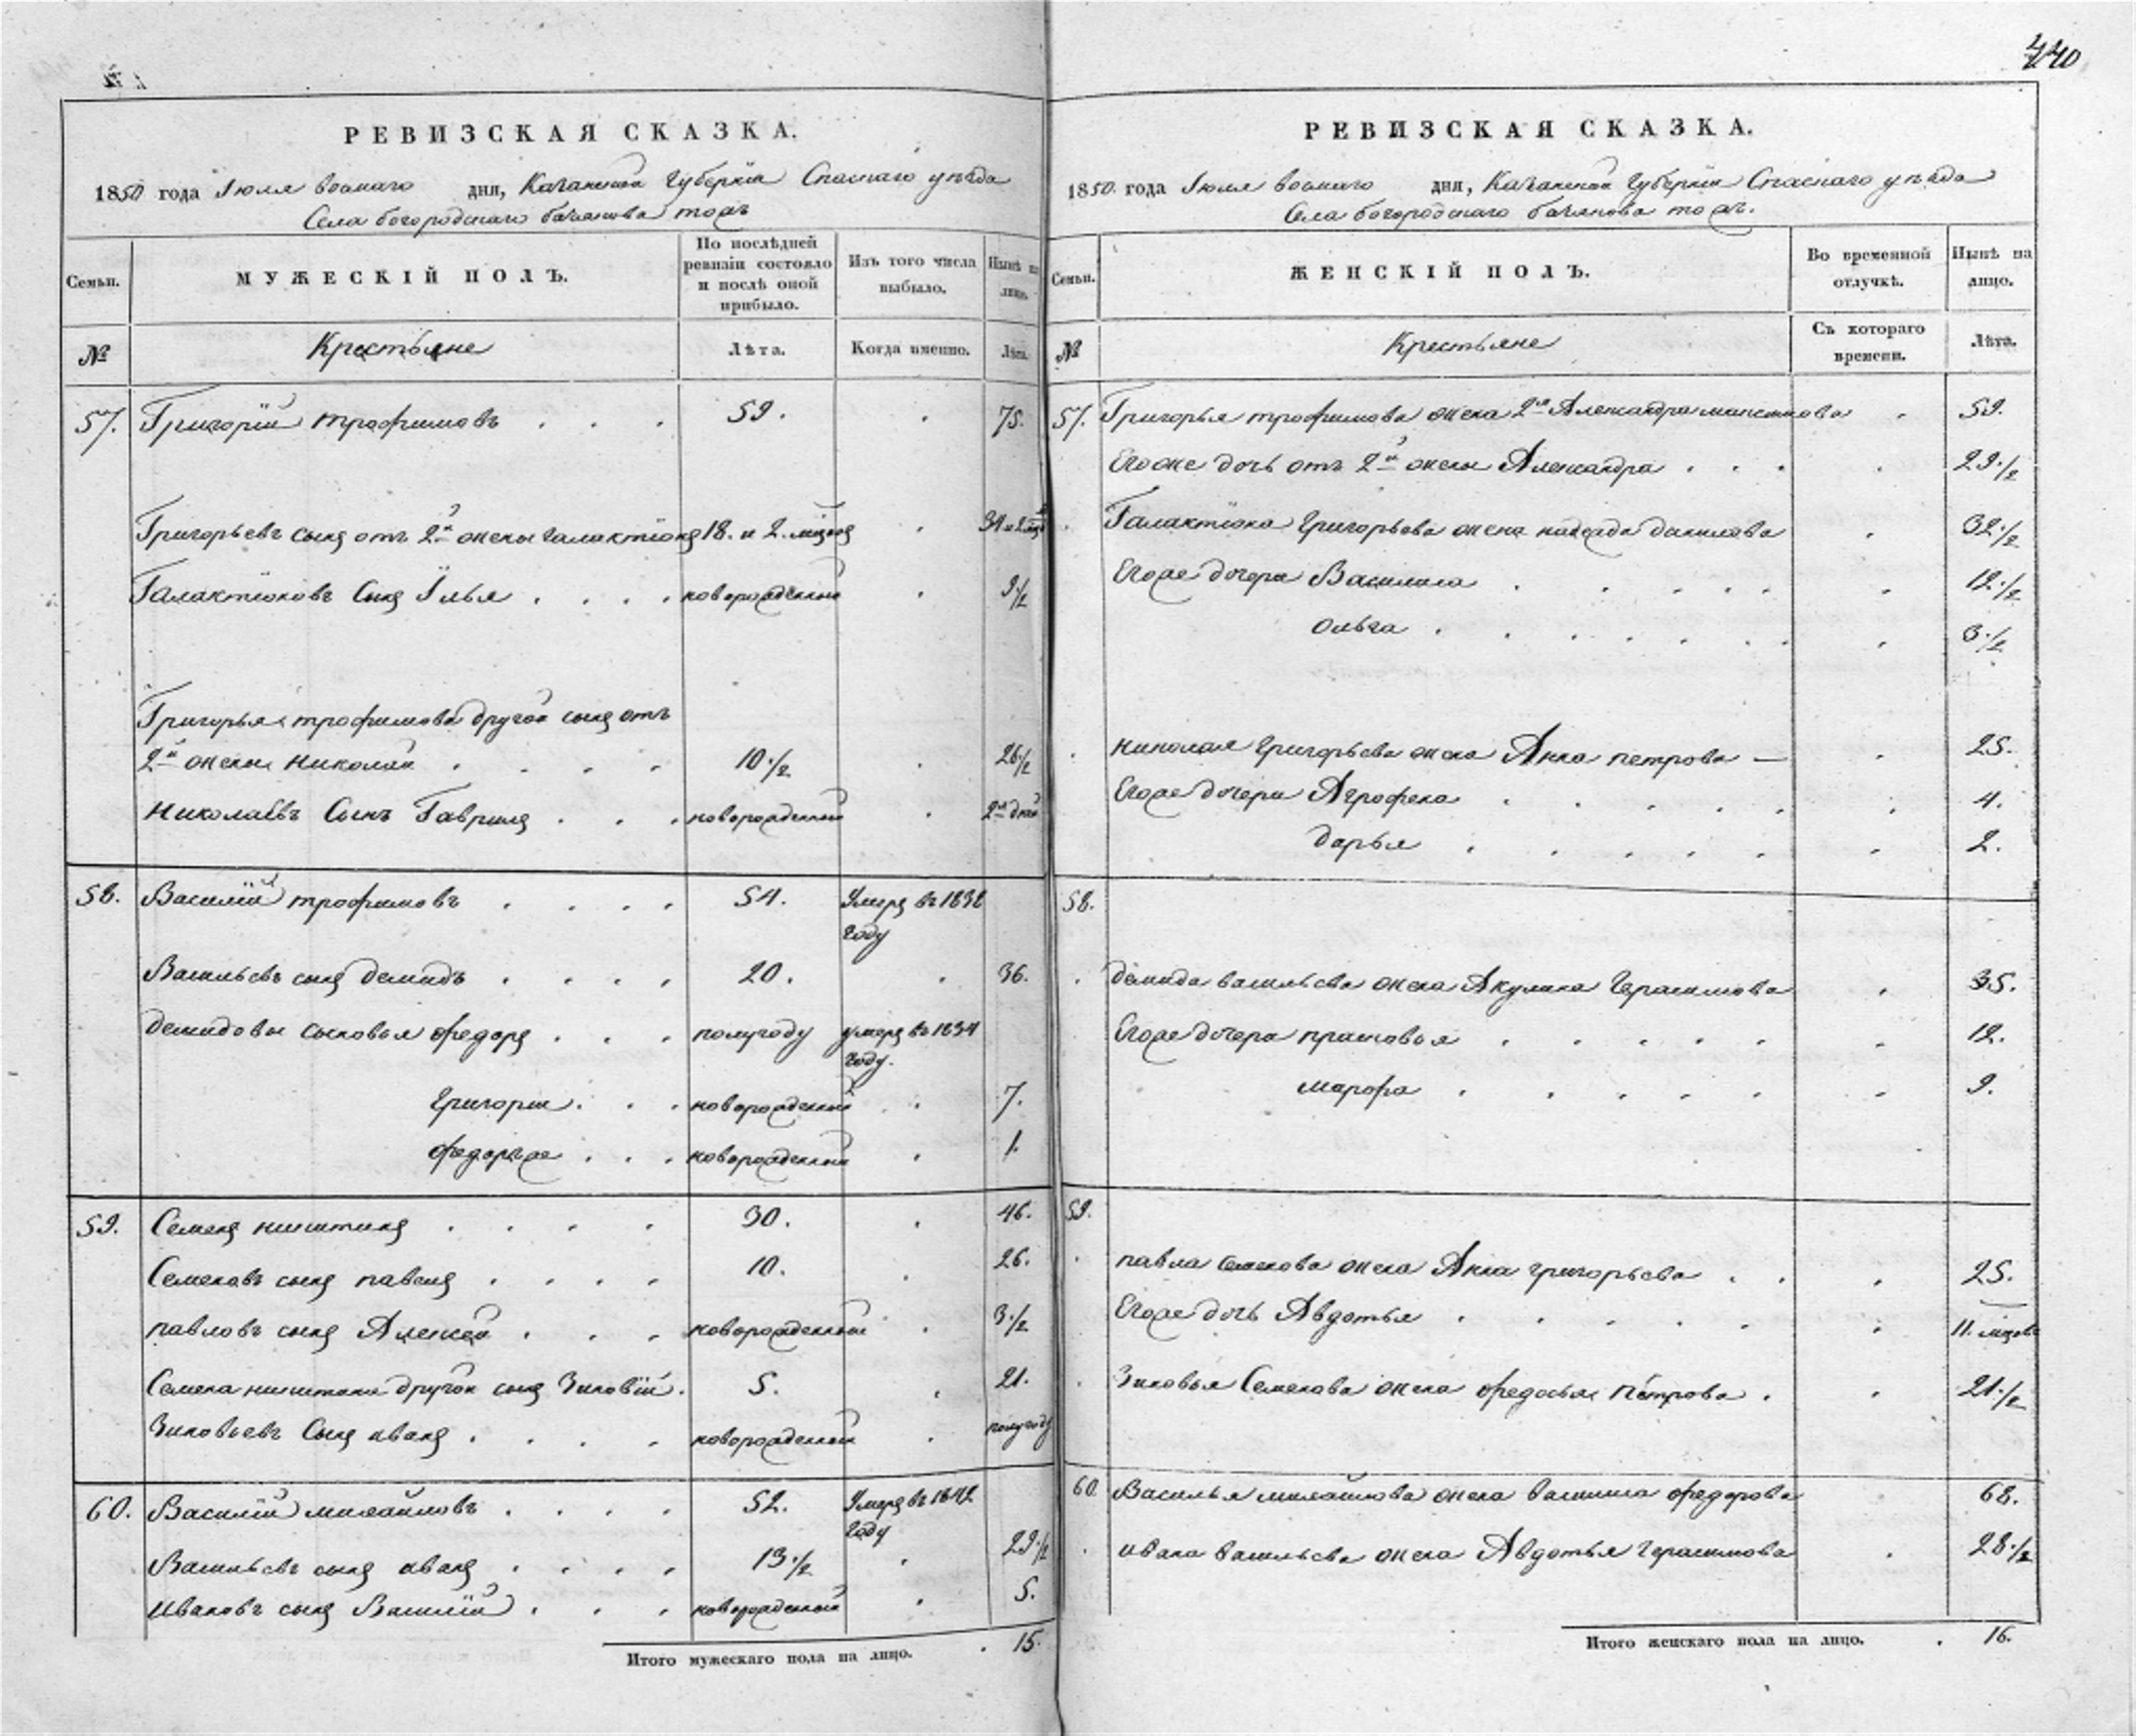 440
РЕВИЗСКАЯ СКАЗКА.
1850 года Іюля восмаго дня, Казанской Губерніи Спаскаго уѣзда
Села богородскаго тожъ
Семьи. МУЖЕСКІЙ ПОЛЪ. По послѣдней ревизіи состояло и послѣ оной прибыло. Изъ того числа выбыло. Нынѣ на лицо.
№ Крестьяне Лѣта. Когда именно. Лѣта.
57. Григорій трофимовъ 59. 75.
Григорьевъ сынъ отъ 2й жены галактіонъ 18. и 2. мѣсяц 34 и 2 мѣс
Галактіоновъ Сынъ Илья новорожденный 9 1/2
Григорья трофимова другой сынъ отъ
2й жены николай 10 1/2 26 1/2
николаевъ Сынъ Гаврила новорожденный 2
58. Василій трофимовъ 54. Умеръ въ 1838
году
Васильевъ сынъ демидъ 20. 36.
демидовы сыновья федоръ полугоду умеръ въ 1834
году.
григорій новорожденный 7.
новорожденный 1.
59. Семенъ никитинъ 30. 46.
Семеновъ сынъ павелъ 10. 26.
павловъ сынъ Алексей новорожденный 3 1/2
Семена никитина другой сынъ Зиновій. 5. 21.
Зиновьевъ Сынъ иванъ новорожденный полугоду
60. Василій михайловъ 52. Умеръ въ 1842
году
Васильевъ сынъ иванъ 13 1/2 29 1/2
ивановъ сынъ Василій новорожденный 5.
Итого мужескаго пола на лицо. 15.
РЕВИЗСКАЯ СКАЗКА.
1850. года Іюля восмаго дня, Казанской Губерніи Спаскаго уѣзда
Села богородскаго тожъ.
Семьи. ЖЕНСКІЙ ПОЛЪ. Во временной отлучкѣ. Нынѣ на лицо.
№ Крестьяне Съ котораго времени. Лѣта.
57. Григорья трофимова жена 2я Александра максимова 59.
Егоже дочь отъ 2й жены Александра 29 1/2
Галактіона григорьева жена надежда данилова 32 1/2
Егоже дочери Василиса 12 1/2
ольга 3 1/2
николая григорьева жена Анна петрова 25.
Егоже дочери Агрофена 4.
дарья 2.
58.
демида васильева жена Акулина Герасимова 35.
Егоже дочери прасковья 12.
марфа 9.
59.
павла семенова жена Анна григорьева 25.
Егоже дочь Авдотья 11. мцовъ
Зиновья Семенова жена федосья петрова 21 1/2
60. Василья михайлова жена василиса федорова 68.
ивана васильева жена Авдотья герасимова 28 1/2
Итого женскаго пола на лицо. 16.